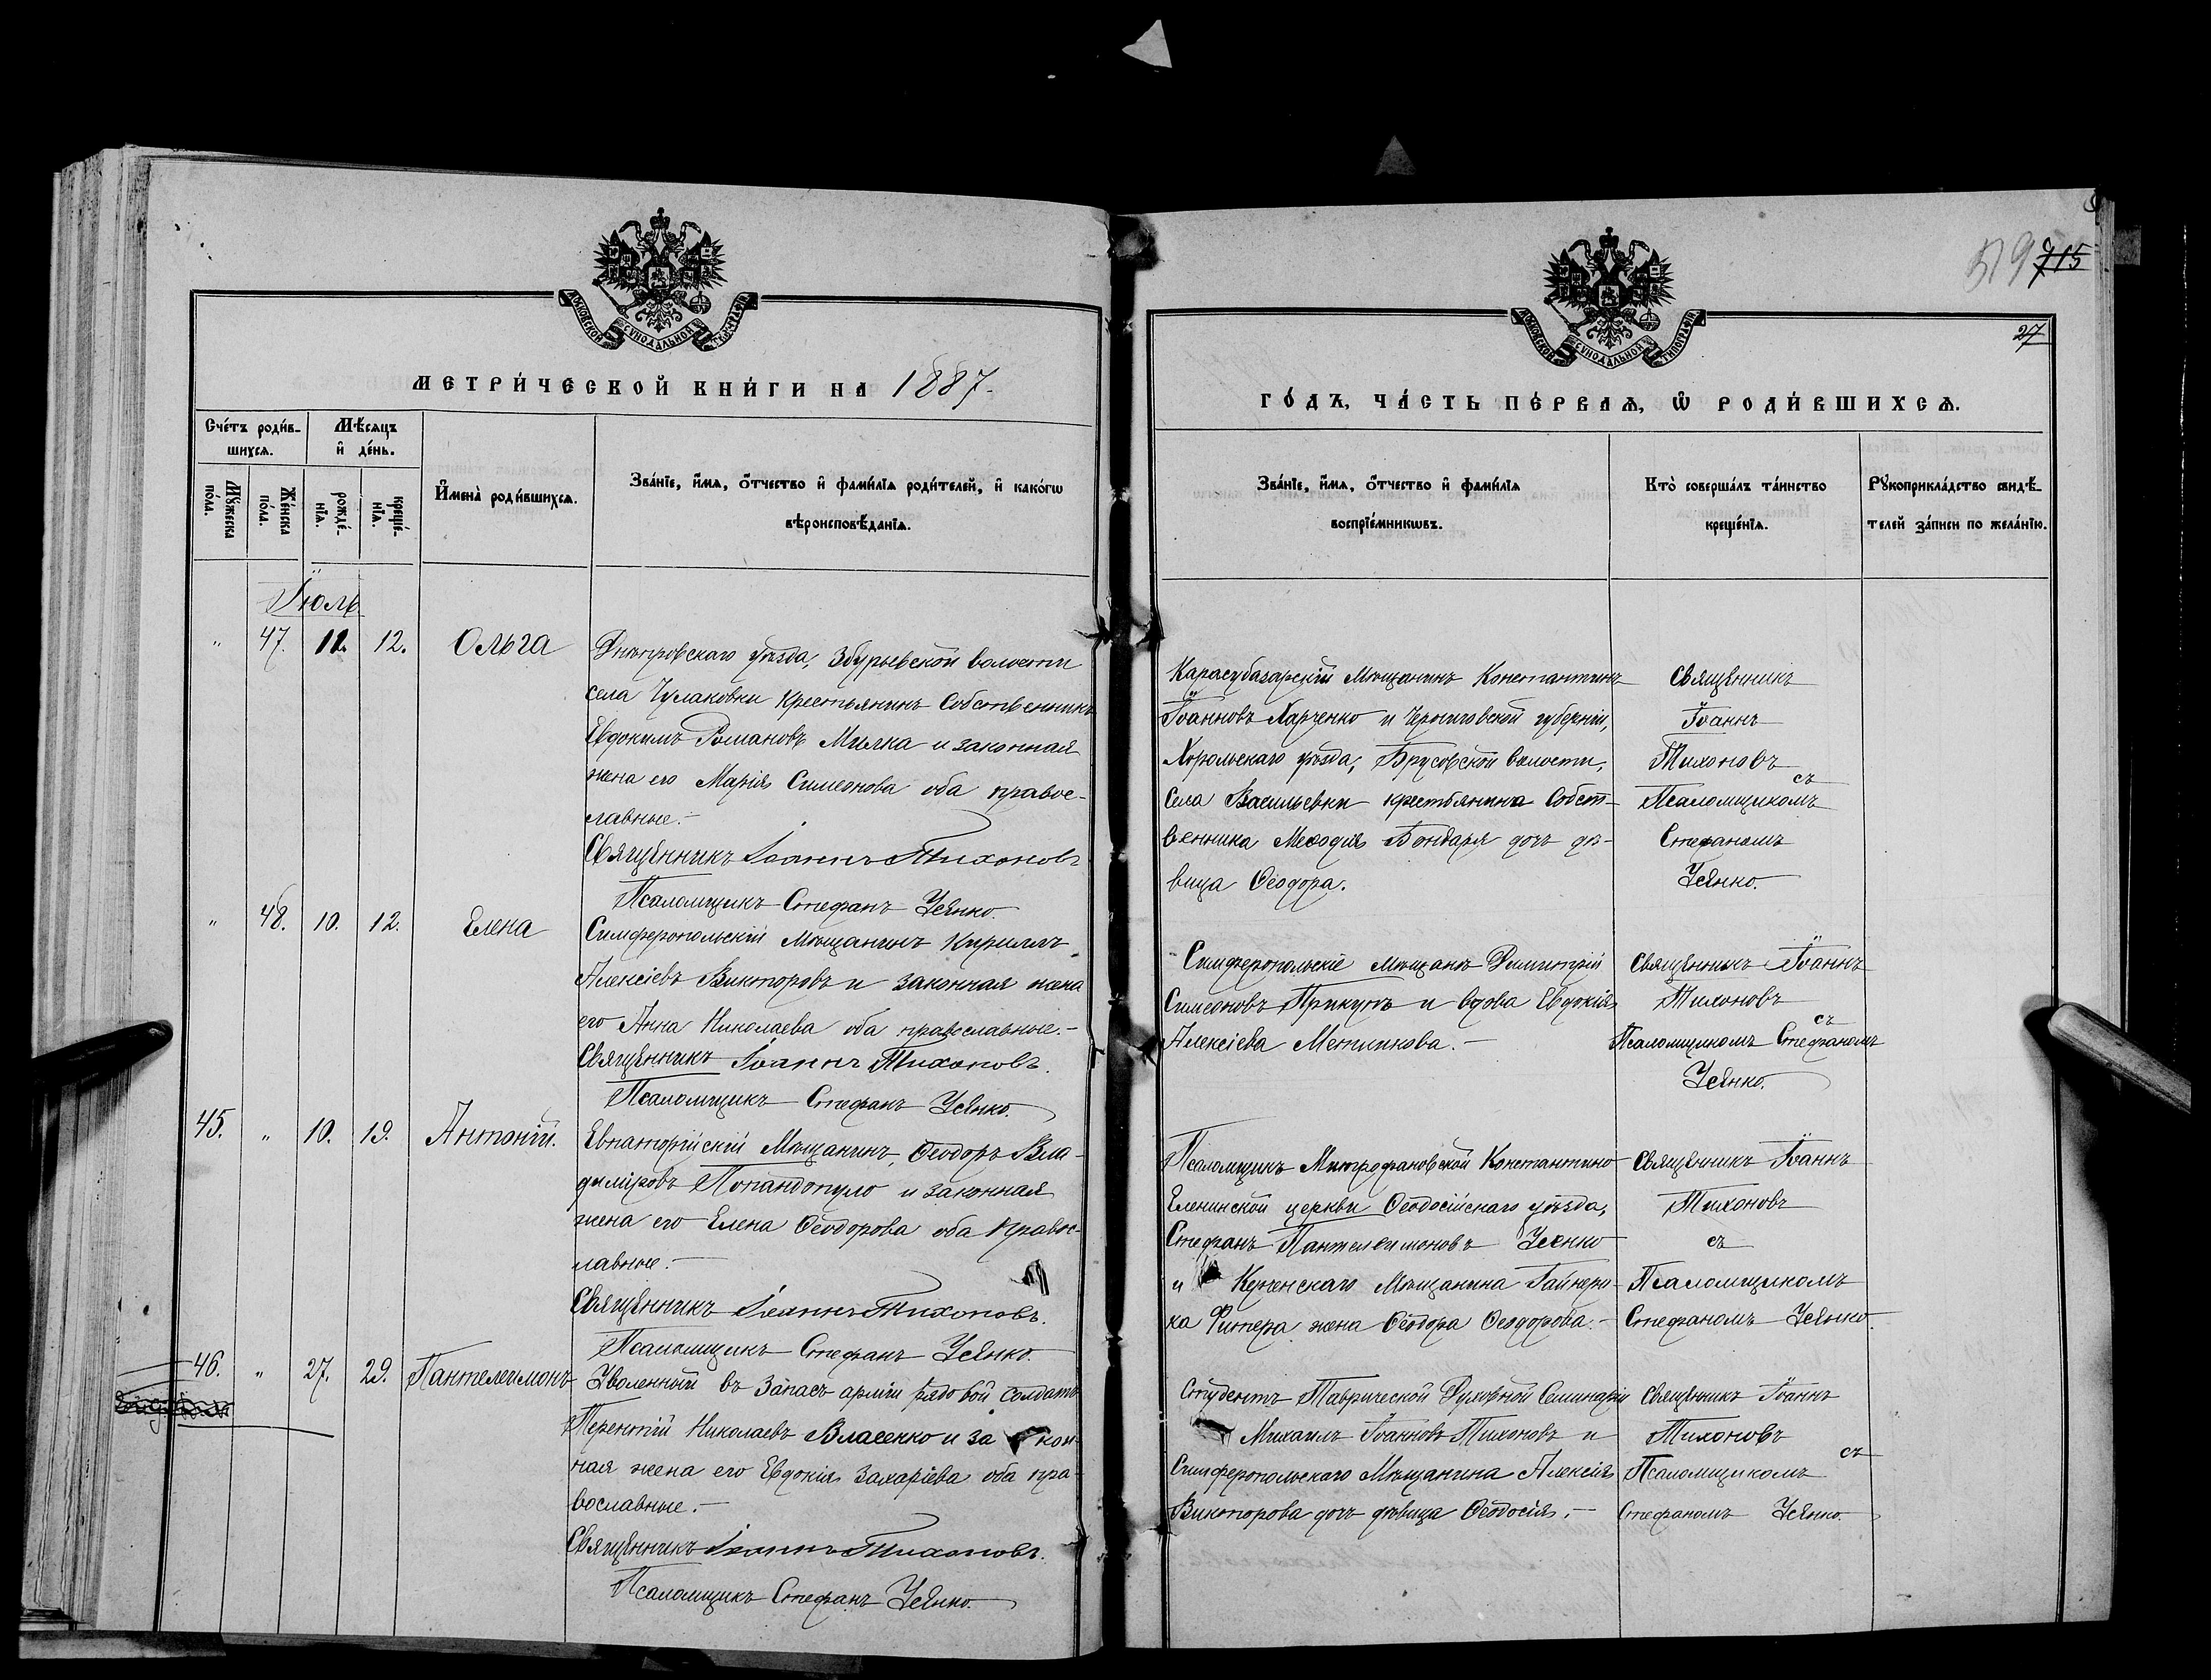 МОСКОВСКОЙ СѴНОДАЛЬНОЙ ТИПОГРАФІИ
МЕТРИ́ЧЕСКОЙ КНИ́ГИ НА 1887.
Сче́тъ роди́в-
шихсѧ.
Мѣ́сѧцъ
и҆ де́нь.
Мꙋ́жеска
по́ла.
Же́нска
по́ла.
рожде́-
нїѧ.
креще́-
нїѧ.
И҆мена̀ роди́вшихсѧ.
Зва́нїе, и҆́мѧ, ѻ҆́тчество и҆ фами́лїѧ роди́телей, и҆ како́гѡ
вѣроисповѣ́данїѧ.
Іюль
" 47. 11. 12. Ольга
Днѣпровскаго уѣзда, Збурьевской волости
села Чулаковки Крестьянинъ Собственникъ
Евдокимъ Романовъ и законная
жена его Марія Симеонова оба правос-
лавные.-
Священникъ Іоаннъ Тихоновъ
Псаломщикъ Стефанъ Усѣнко.
" 48. 10. 12. Елена
Симферопольскій Мѣщанинъ Кириллъ
Алексіевъ Викторовъ и законная жена
его Анна Николаева оба православные.-
Священникъ Іоаннъ Тихоновъ.
Псаломщикъ Стефанъ Усѣнко.
45. " 10. 19. Антоній.
Евпаторійскій Мѣщанинъ, Ѳеодоръ Вла-
диміровъ Попандопуло и законная
жена его Елена Ѳеодорова оба Правос-
лавные.-
Священникъ Іоаннъ Тихоновъ.
Псаломщикъ Стефанъ Усѣнко.
46. " 27. 29. Пантелеимонъ
Уволенный въ Запасъ арміи рядовой солдатъ
Терентій Николаевъ Власенко и за кон-
ная жена его Евдокія Захаріева оба пра-
вославные.-
Священникъ Іоаннъ Тихоновъ.
Псаломщикъ Стефанъ Усѣнко.
715
27
МОСКОВСКОЙ СѴНОДАЛЬНОЙ ТИПОГРАФІИ
ГО́ДЪ, ЧА́СТЬ ПЕ́РВАѦ, Ѡ҆ РОДИ́ВШИХСѦ.
Зва́нїе, и҆́мѧ, ѻ҆́тчество и҆ фами́лїѧ
воспрїе́мникѡвъ.
Кто̀ соверша́лъ та́инство
креще́нїѧ.
Рꙋкоприкла́дство свидѣ́-
телей за́писи по жела́нїю.
Карасубазарскій Мѣщанинъ Константинъ
Іоанновъ Харченко и Черниговской губерніи,
Хорольскаго уѣзда, Брусовской волости,
Села Васильевки крестьянина Собст-
венника Меѳодія Бондаря дочь дѣ-
вица Ѳеодора.
Священникъ
Іоаннъ
Тихоновъ
съ
Псаломщикомъ
Стефаномъ
Усѣнко.
Симферопольскіе мѣщанъ Димитрій
Симеоновъ Прикупъ и вдова Евдокія
Алексіева Метликова.-
Священникъ Іоаннъ
Тихоновъ
съ
Псаломщикомъ Стефаномъ
Усѣнко.
Псаломщикъ Митрофановской Константино-
Еленинской церкви Ѳеодосійскаго уѣзда,
Стефанъ Пантелеимоновъ Усѣнко
и Керченскаго Мѣщанина Гайнри-
ха Ритера жена Ѳеодора Ѳеодорова.-
Священникъ Іоаннъ
Тихоновъ
съ
Псаломщикомъ
Стефаномъ Усѣнко.
Студентъ Таврической Духовной Семинаріи
Михаилъ Іоанновъ Тихоновъ и
Симферопольскаго Мѣщанина Алексія
Викторова дочь дѣвица Ѳеодосія.-
Священникъ Іоаннъ
Тихоновъ
съ
Псаломщикомъ
Стефаномъ Усѣнко.